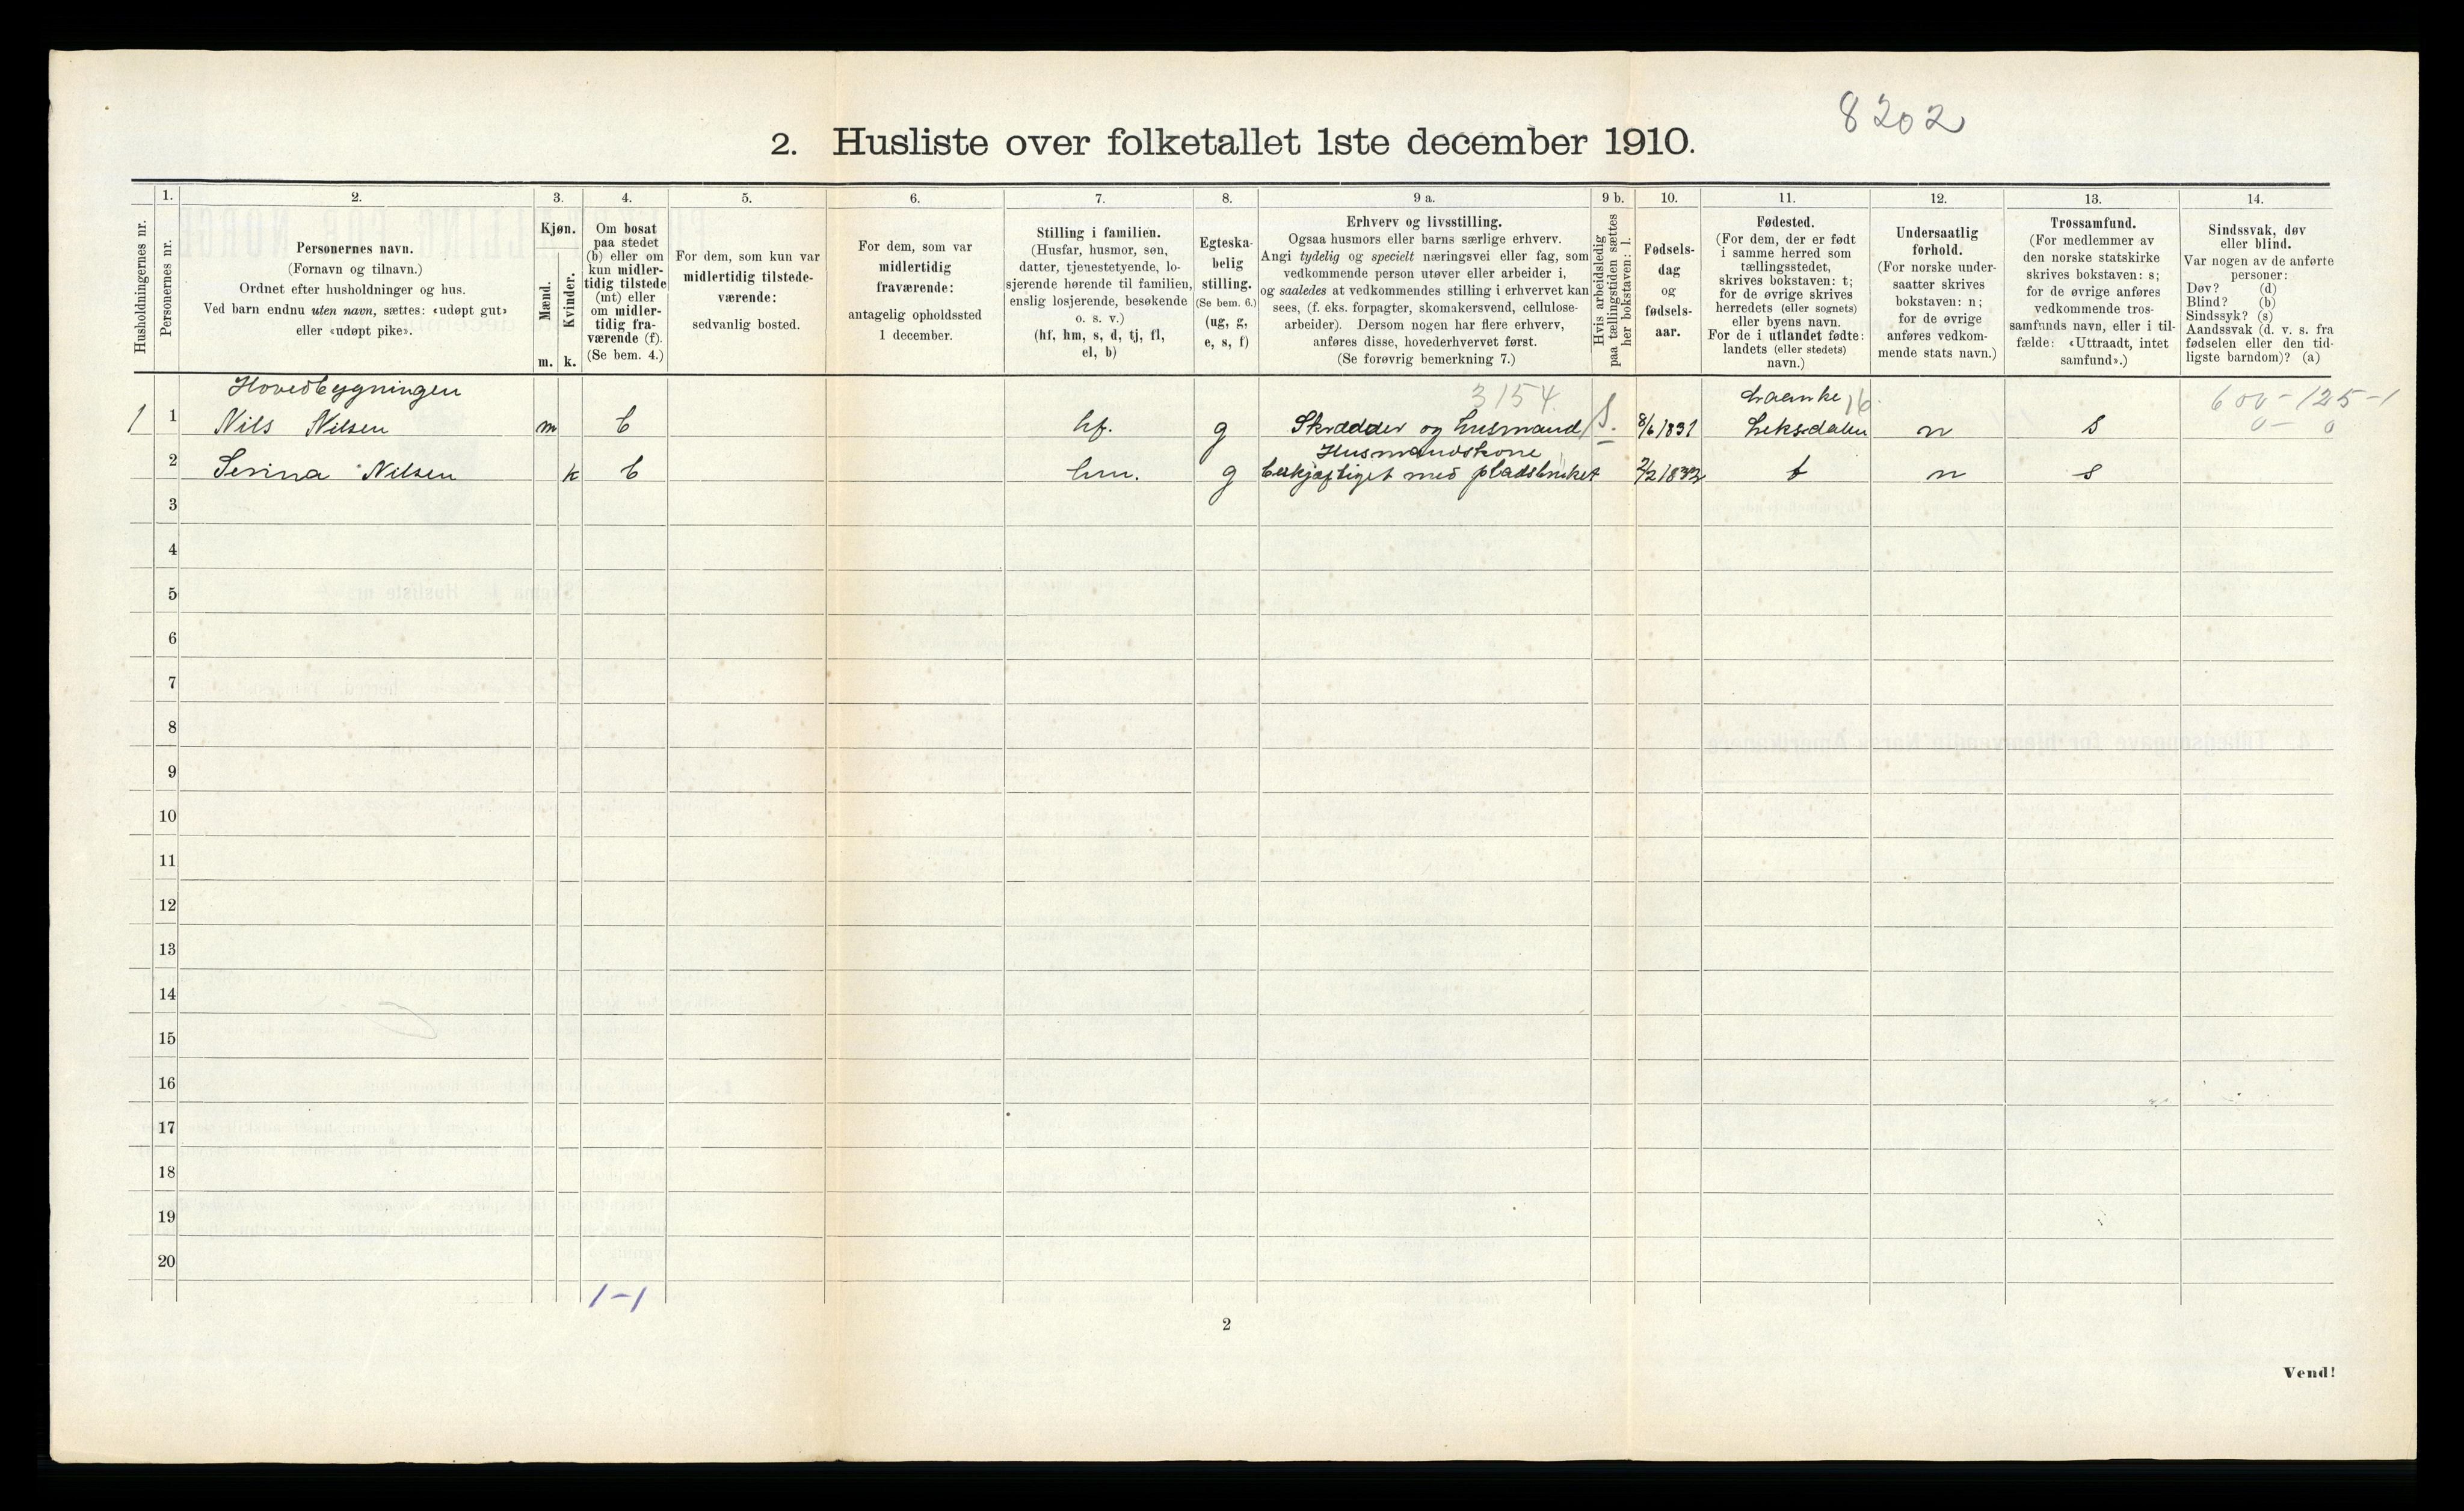 8202
2. Husliste over folketallet 1ste december 1910.
Husholdningernes nr.
1.
Personernes nr.
2.
Personernes navn.
(Fornavn og tilnavn.)
Ordnet efter husholdninger og hus.
Ved barn endnu uten navn, sættes: «udøpt gut»
eller «udøpt pike».
3.
Kjøn.
Mænd.
m.
Kvinder.
k.
4.
Om bosat
paa stedet
(b) eller om
kun midler-
tidig tilstede
(mt) eller
om midler-
tidig fra-
værende (f).
(Se bem. 4.)
5.
For dem, som kun var
midlertidig tilstede-
værende:
sedvanlig bosted.
6.
For dem, som var
midlertidig
fraværende:
antagelig opholdssted
1 december.
7.
Stilling i familien.
(Husfar, husmor, søn,
datter, tjenestetyende, lo-
sjerende hørende til familien,
enslig losjerende, besøkende
o. s. v.)
(hf, hm, s, d, tj, fl,
el, b)
8.
Egteska-
belig
stilling.
(Se bem. 6.)
(ug, g,
e, s, f)
9 a.
Erhverv og livsstilling.
Ogsaa husmors eller barns særlige erhverv.
Angi tydelig og specielt næringsvei eller fag, som
vedkommende person utøver eller arbeider i,
og saaledes at vedkommendes stilling i erhvervet kan
sees, (f. eks. forpagter, skomakersvend, cellulose-
arbeider). Dersom nogen har flere erhverv,
anføres disse, hovederhvervet først.
(Se forøvrig bemerkning 7.)
9 b.
Hvis arbeidsledig
paa tællingstiden sættes
her bokstaven: l.
10.
Fødsels-
dag
og
fødsels-
aar.
11.
Fødested.
(For dem, der er født
i samme herred som
tællingsstedet,
skrives bokstaven: t;
for de øvrige skrives
herredets (eller sognets)
eller byens navn.
For de i utlandet fødte:
landets (eller stedets)
navn.)
12.
Undersaatlig
forhold.
(For norske under-
saatter skrives
bokstaven: n;
for de øvrige
anføres vedkom-
mende stats navn.)
13.
Trossamfund.
(For medlemmer av
den norske statskirke
skrives bokstaven: s;
for de øvrige anføres
vedkommende tros-
samfunds navn, eller i til-
fælde: «Uttraadt, intet
samfund».)
14.
Sindssvak, døv
eller blind.
Var nogen av de anførte
personer:
Døv? (d)
Blind? (b)
Sindssyk? (s)
Aandssvak (d. v. s. fra
fødselen eller den tid-
ligste barndom)? (a)
Hovedbygningen 3154 16 600-125-1
1 1 Nils Nilsen m b hf. g Skrædder og husmand S. 8/6 1831 Leksdalen n s 0- 0
Husmandskone
2 Serina Nilsen k b hm. g beskjæftiget med pladsbruket 2/2 1832 t n s
3
4
5
6
7
8
9
10
11
12
13
14
15
16
17
18
19
20
1-1
2
Vend!